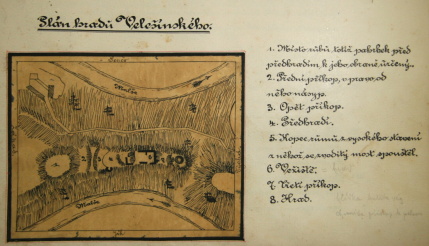 Plán hradu Velešínského.
Sever
Malše
Malše
Jih
1. Místo srubů, totiž pahrbek před
předhradím k jeho obraně určený.
2. Přední příkop, v pravo od
něho násyp.
3. Opět příkop.
4. Předhradí.
5. Kopec rumu z vysokého stavení
z něhož se voditý most spouštěl.
6. Vožiště.
7. Třetí příkop.
8. Hrad.